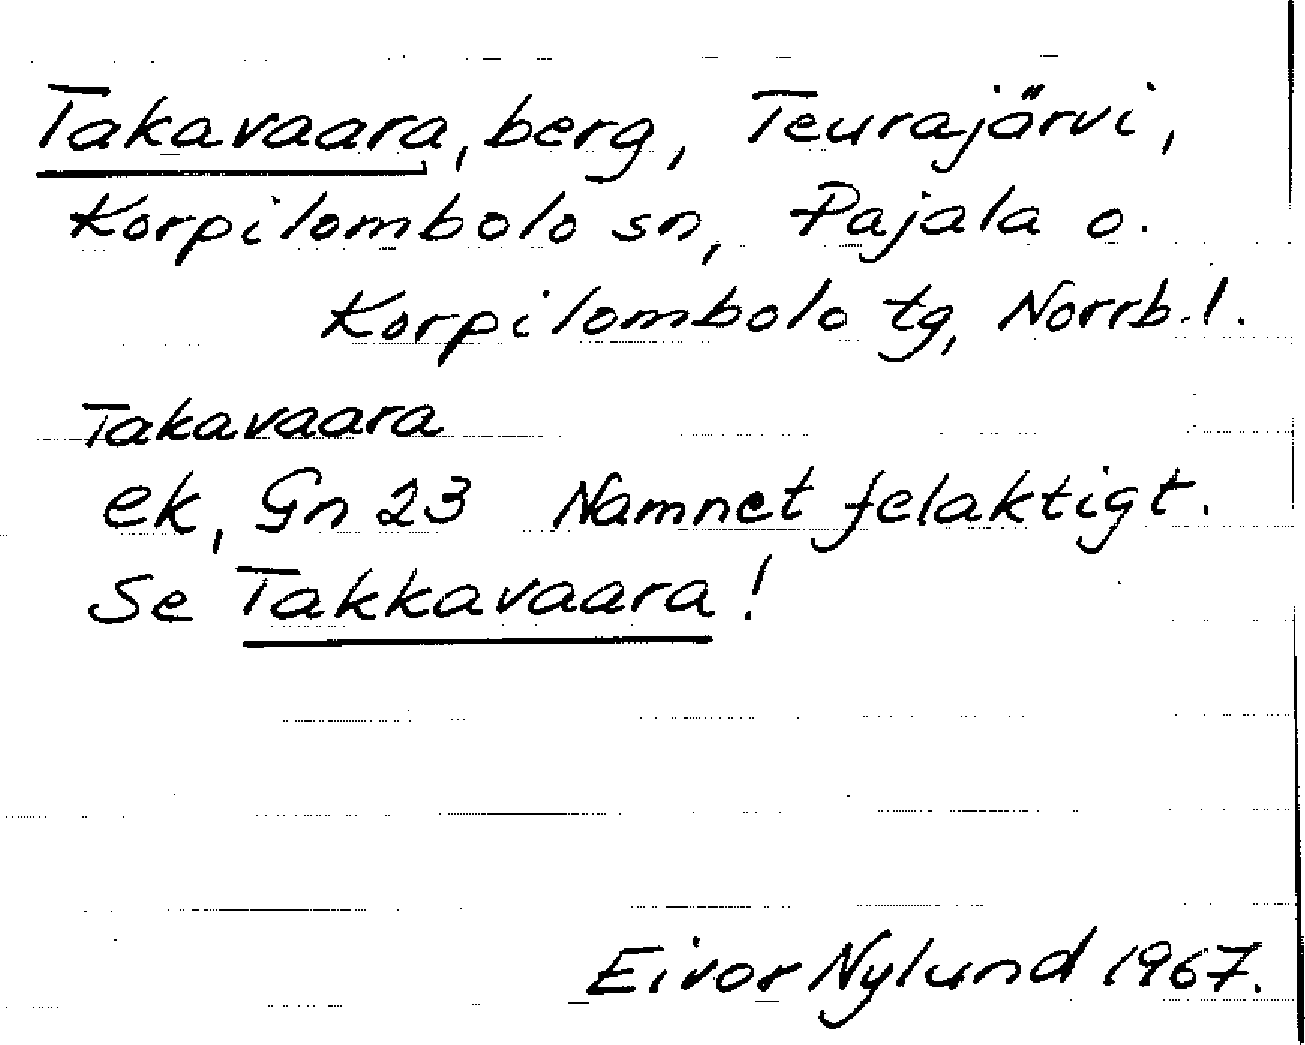 Takavaara, berg, Teurajärvi,
Korpilombolo sn, Pajala o.
Korpilombolo tg, Norrb. l.
Takavaara
ek, Gn 23 Namnet felaktigt.
Se Takkavaara!
Eivor Nylund 1967.